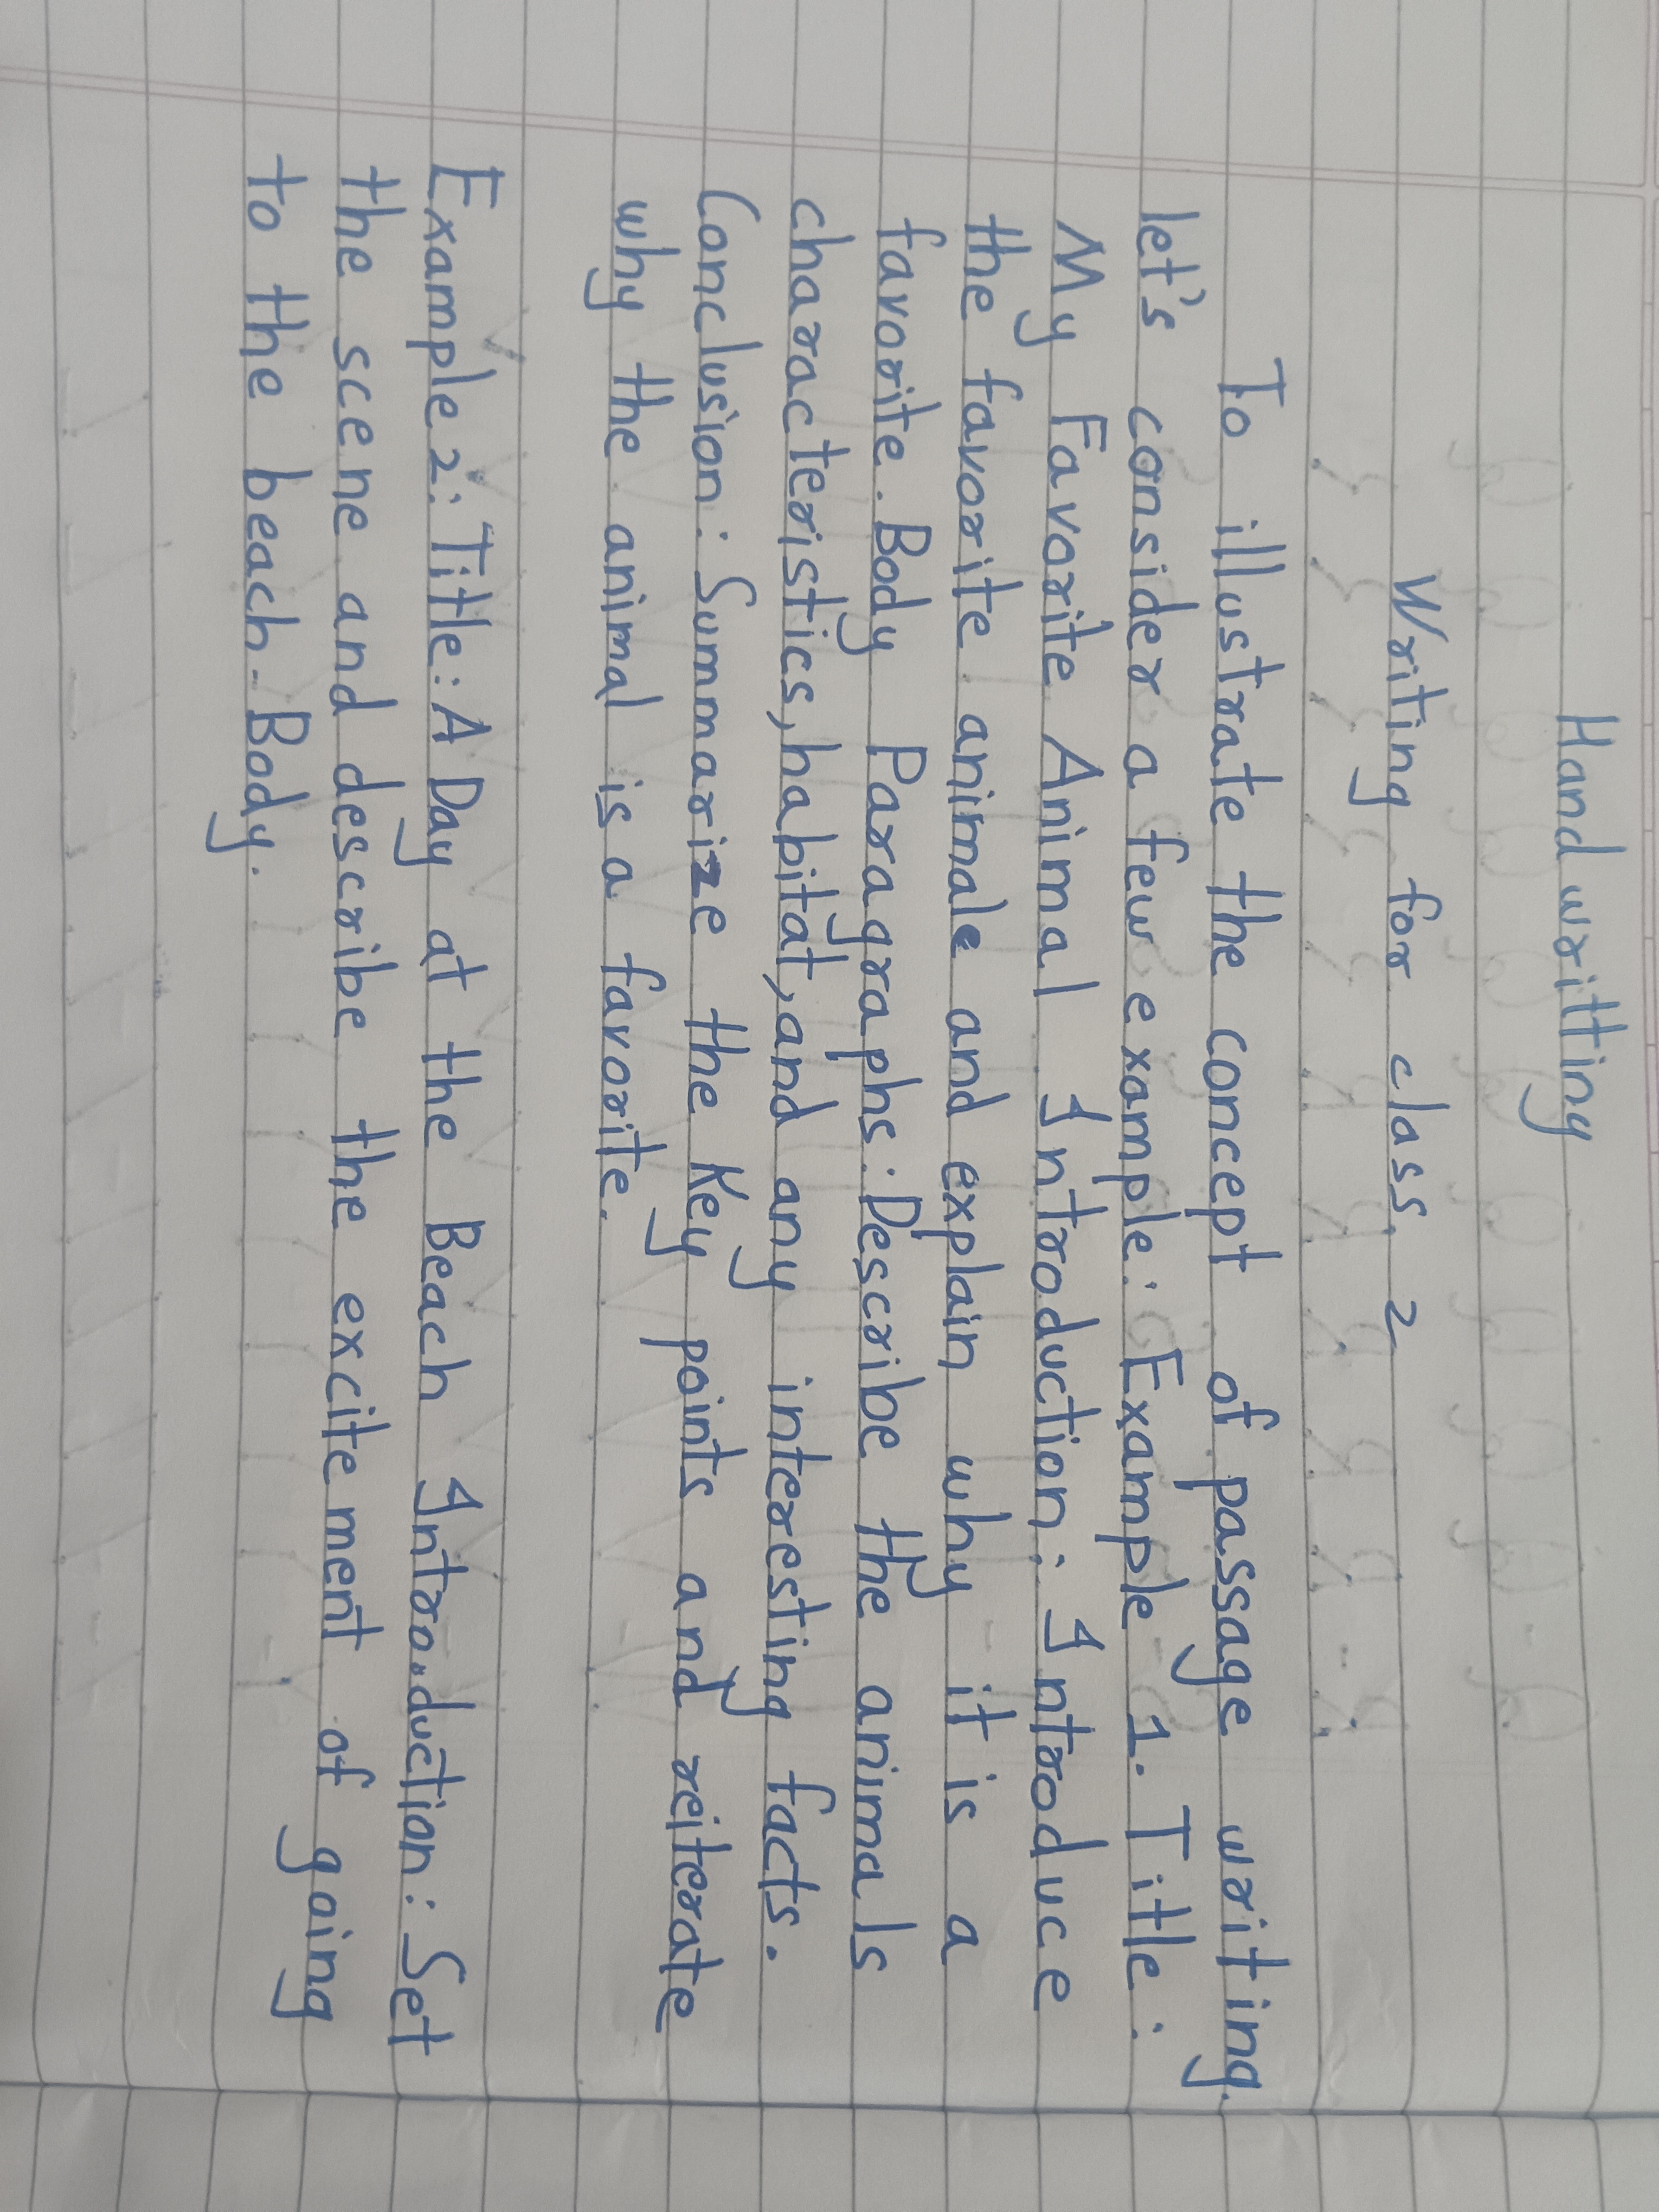 Hand writting
Writing for class 2
To illustrate the concept of passage writing.
let's consider a few example: Example 1. Title:
My Favorite Animal Introduction: Introduce
the favorite animale and explain why it is a
favorite. Body Paragraphs: Describe the animals
characteristics, habitat, and any interesting facts.
Conclusion: Summarize the Key points and reiterate
why the animal is a favorite.
Example 2: Title: A Day at the Beach Introduction: Set
the scene and describe the excitement of going
to the beach-Body.